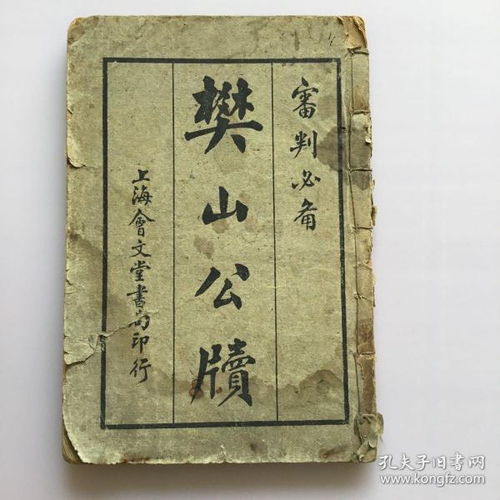 審判必备
樊山公牘
上海會文堂書局印行
孔夫子旧书网
www.kongfz.com